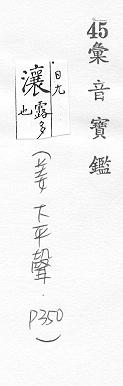 45彙音寶鑑
日九
瀼露多也
(姜下平聲．
P350)